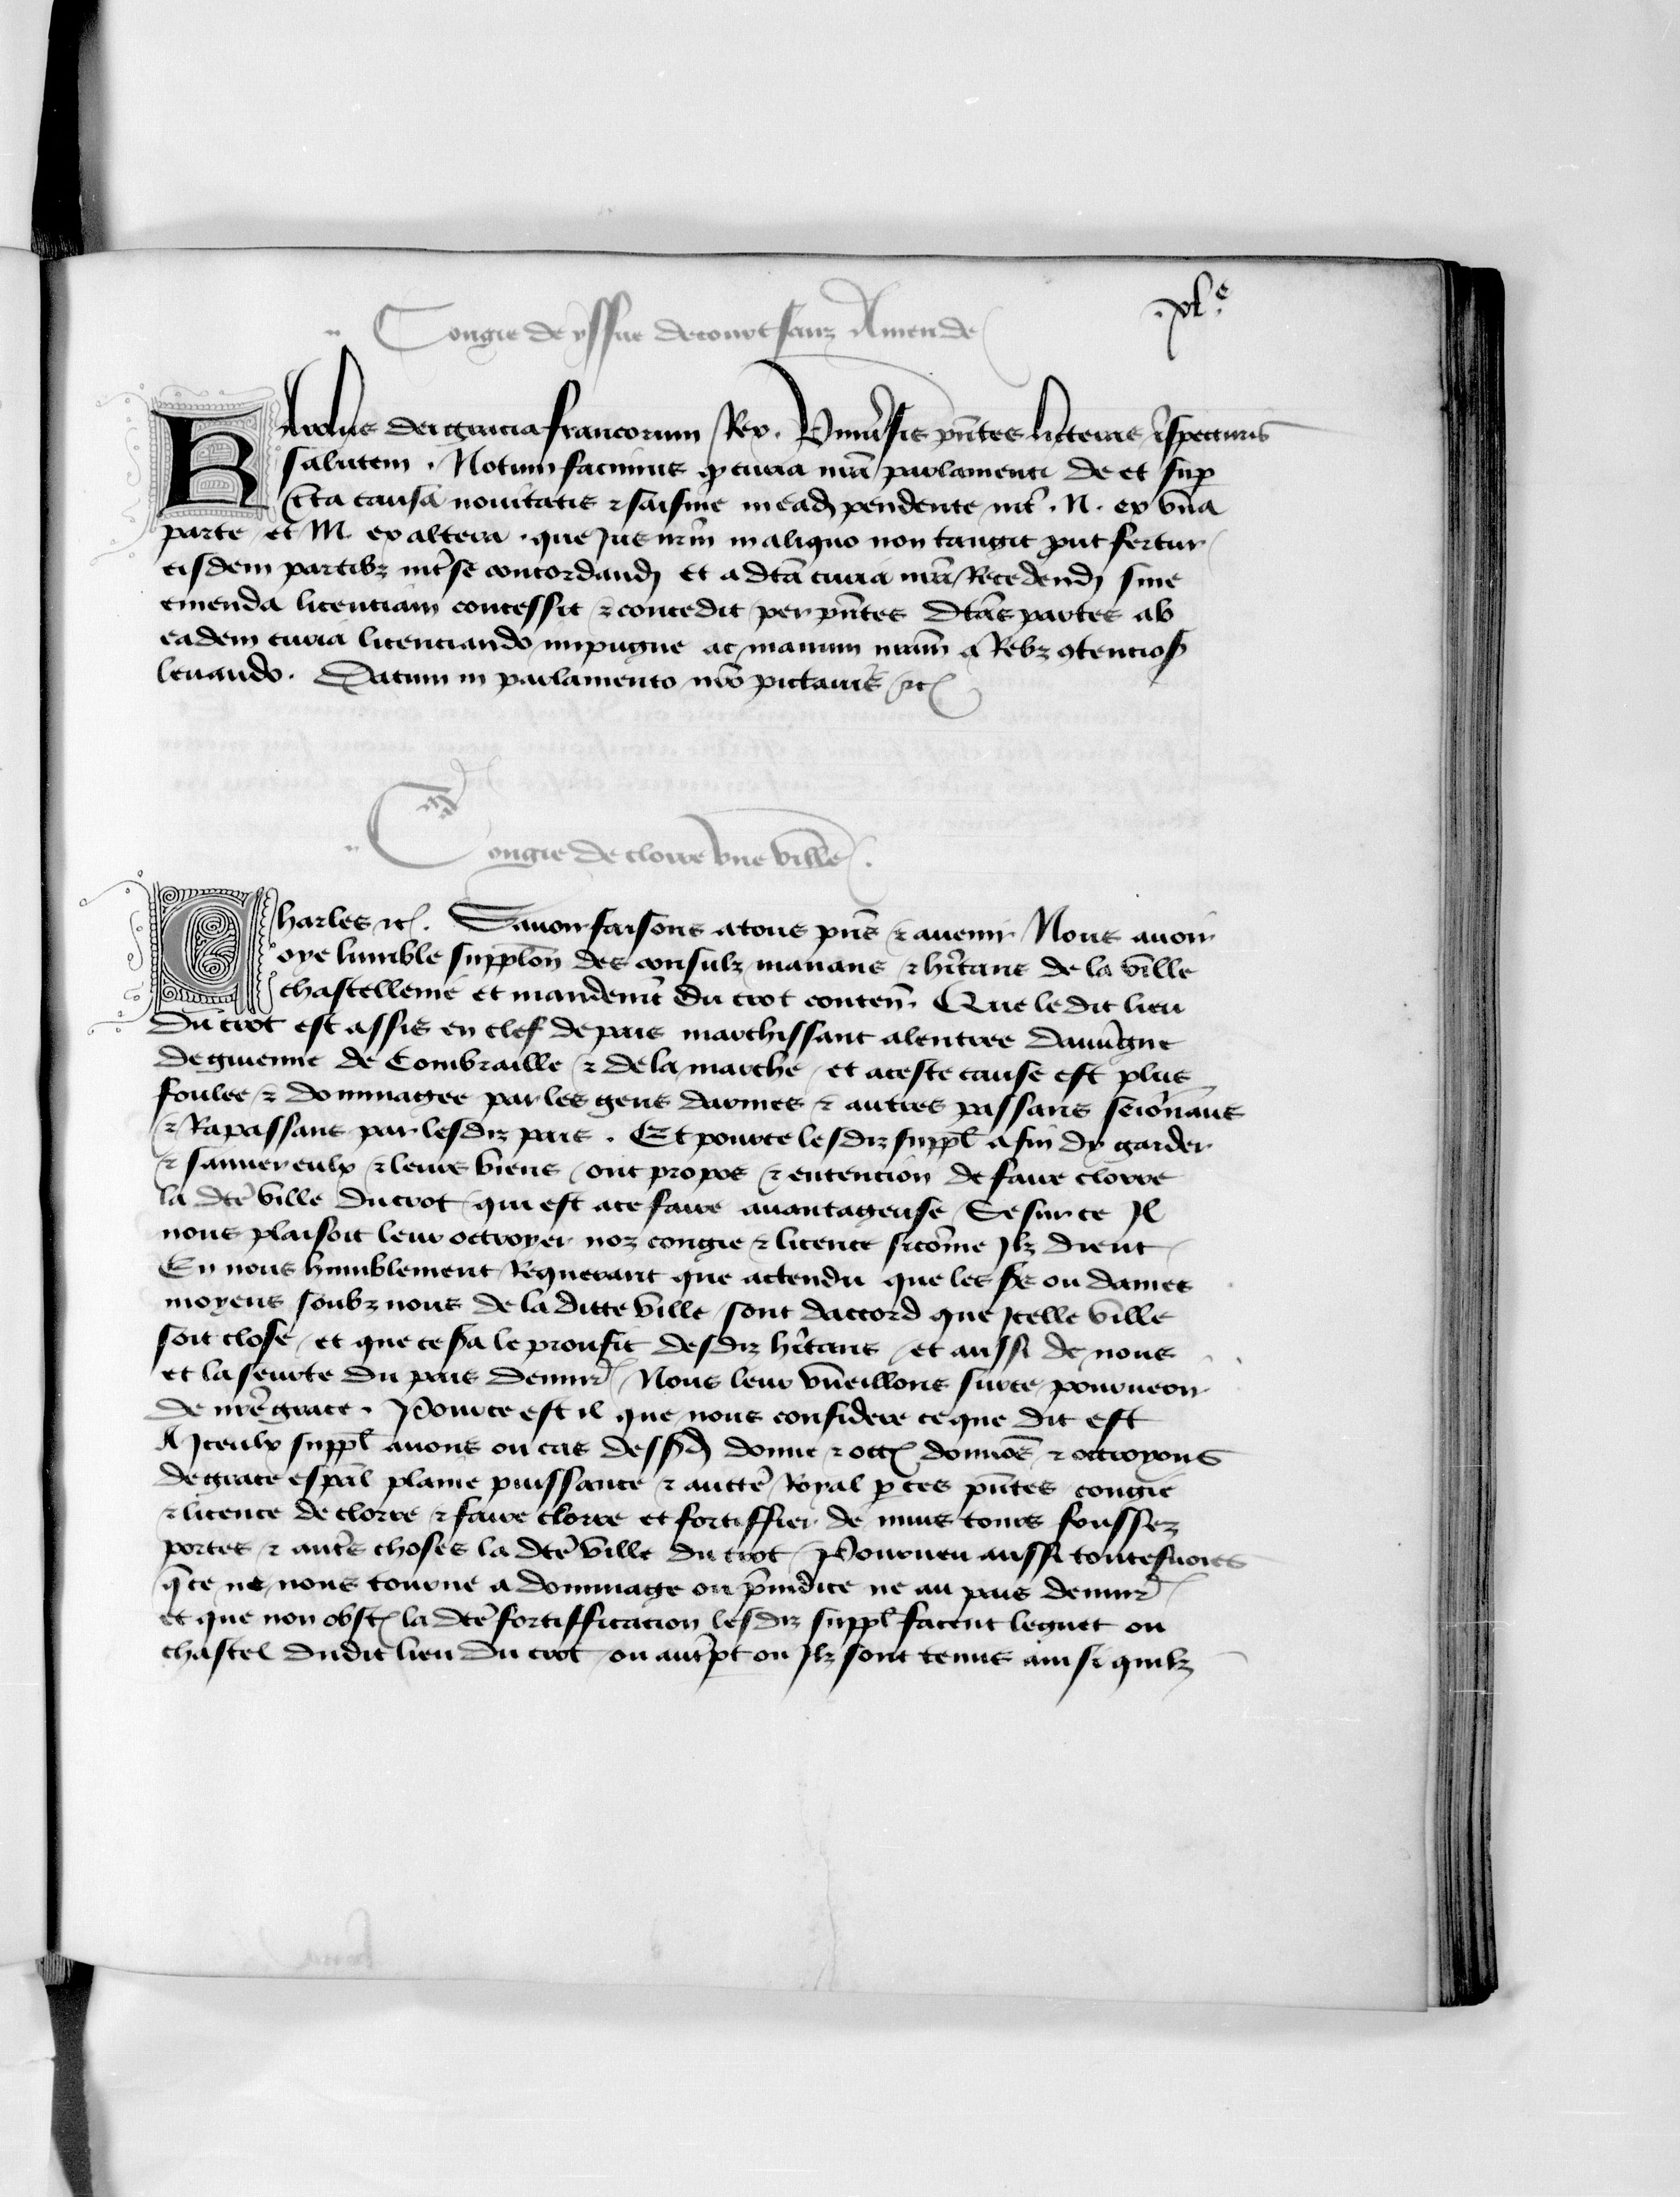 .xlᵉ.
Congie de yssue de court sanz Amende
Karolus dei gracia francorum Rex . Univ̾sis pn̄tes litteras īspecturis
salutem . Notum facimus q̄ curia nr̄a parlamenti de et sup̱
c̄ta causa nouitatis ⁊ saisine in eadꝫ pendente int̾ . N . ex vna
parte et M ex altera . que Jus nr̄m in aliquo non tangit ꝓut fertur
eisdem partibꝫ int̾ se concordandꝫ et a dc̄ta curia nr̄a Recedendꝫ sine
emenda licentiam concessit ⁊ concedit per pn̄tes dc̄tas partes ab
eadem curia licenciando impugne ac manum nr̄am a Rebꝫ ꝯtencios̄
leuando . Datum in parlamento nr̄o pictauis̄ ⁊c̄
Congie de clorre vne ville .
Charles ⁊c̄ . Sauoir faisons a tous pn̄s ⁊ auenir Nous auoir
oye lumble suppl̄on des consulz manans ⁊ hītans de la ville
chastellenie et mandemēt du crot conten̄ . Que le dit lieu
du crot est assis en clef de pais marchissant alentree dauūgne
de guienne de Combraille ⁊ de la marche et a ceste cause est plus
foulee ⁊ dommagee par les gens darmes ⁊ autres passans seiōnans
⁊ Rapassans par lesdiz pais . Et pource lesdiz suppl̄ afin dy garder
⁊ sauuer eulx ⁊ leurs biens ont propos ⁊ entencion de faire clorre
la dcē ville du crot qui est a ce faire auantageuse Se sur ce Jl
nous plaisoit leur octroyer noz congie ⁊ licence sicōme Jlz dient
En nous humblement Requerant que actendu que les ss̄ ou dames
moyens soubz nous de la ditte ville sont daccord que Jcelle ville
soit close et que ce s̄a le proufit desdiz hītans et aussi de nous
et la seurte du pais denuir̄ Nous leur vueillons sur ce pourueoir
de nr̄e grace . Pource est il que nous considere ce que dit est
A Jceulx suppl̄ auons ou cas dess̄ dꝫ donne ⁊ oct̄ donnōs ⁊ octroyons
de grace esp̄al plaine puissance ⁊ auctē Royal p̱ ces pn̄tes congie
⁊ licence de clorre ⁊ faire clorre et fortiffier de murs tours foussez
portes ⁊ autr̄s choses la dcē ville du crot Pourueu aussi toutesuoies
q̄ ce ne nous tourne a dommage ou p̄iudice ne au pais denuir̄
et que non obst̄ la dcē fortifficacion lesdiz suppl̄ facent leguet ou
chastel dudit lieu du crot ou autꝛ̄pt ou Jlz sont tenus ainsi quilz